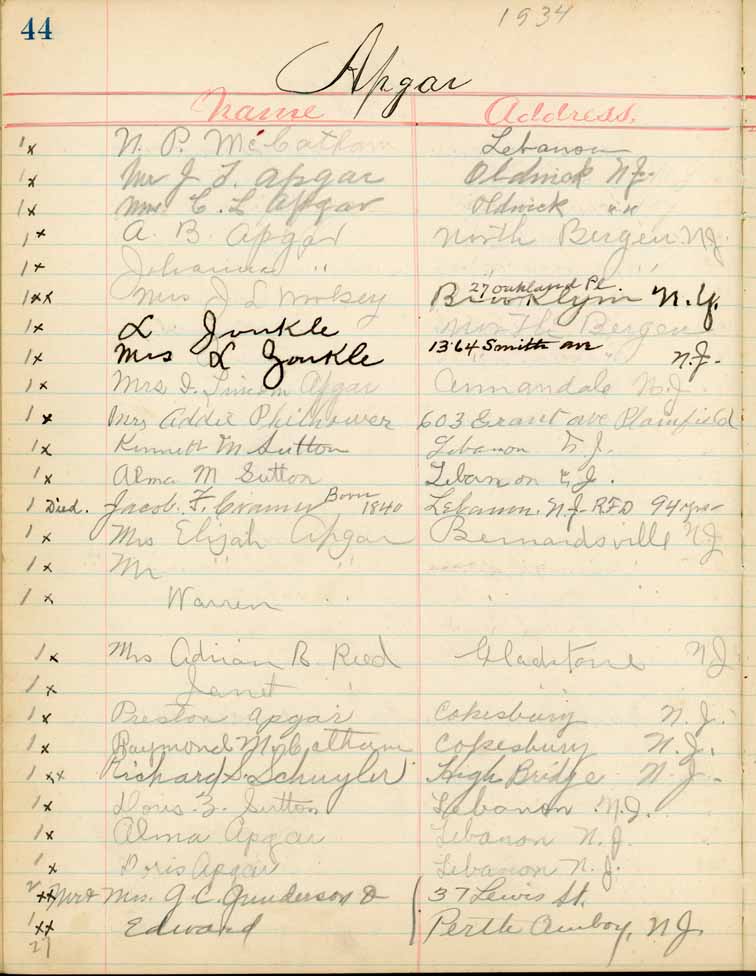 44
1934
Apgar
Name Address.
1x N. P. McCatharn Lebanon
1x Mr J. F. Apgar Oldwick N.J.
1x Mrs C. L Apgar Oldwick " "
1x A. B. Apgar North Bergen. N.J.
1x Johanna " " "
27 Oakland Pl.
1xx Mrs J L Brooklyn N.Y.
1x L Zonkle North Bergen
1x Mrs L Zonkle 1364 Smith av N.J.
1x Mrs Apgar Annandale N.J.
1x Mrs Addie Philhower 603 Grant ave Plainfield
1x Kenneth M Sutton Lebanon N.J.
1x Alma M Sutton Lebanon N.J.
1 Died. Jacob. F. Cramer Born 1840 Lebanon. N.J. RFD 94 yrs
1x Mrs Elijah Apgar Bernardsville NJ
1x Mr " "
1x Warren " "
1x Mrs Adrian B Reed Gladstone NJ
1x Janet "
1x Preston Apgar Cokesbury N.J.
1x Raymond McCatharn Cokesbury N.J.
1xx Richard S. Schuyler High Bridge N.J.
1x Doris Z. Sutton Lebanon N.J.
1x Alma Apgar Lebanon N.J.
1x Doris Apgar Lebanon N.J.
2 xx Mr & Mrs. G. C. Gunderson & 37 Lewis St.
1xx Edward Perth Amboy, N.J.
27